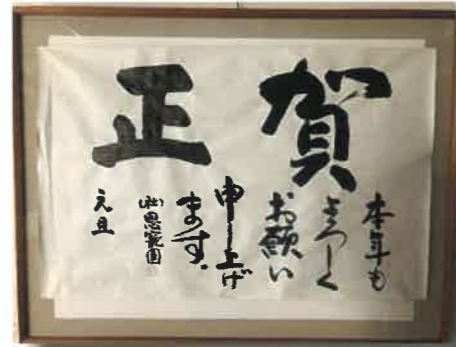 賀正
本年も
よろしく
お願い
申し上げ
ます。
園
元旦